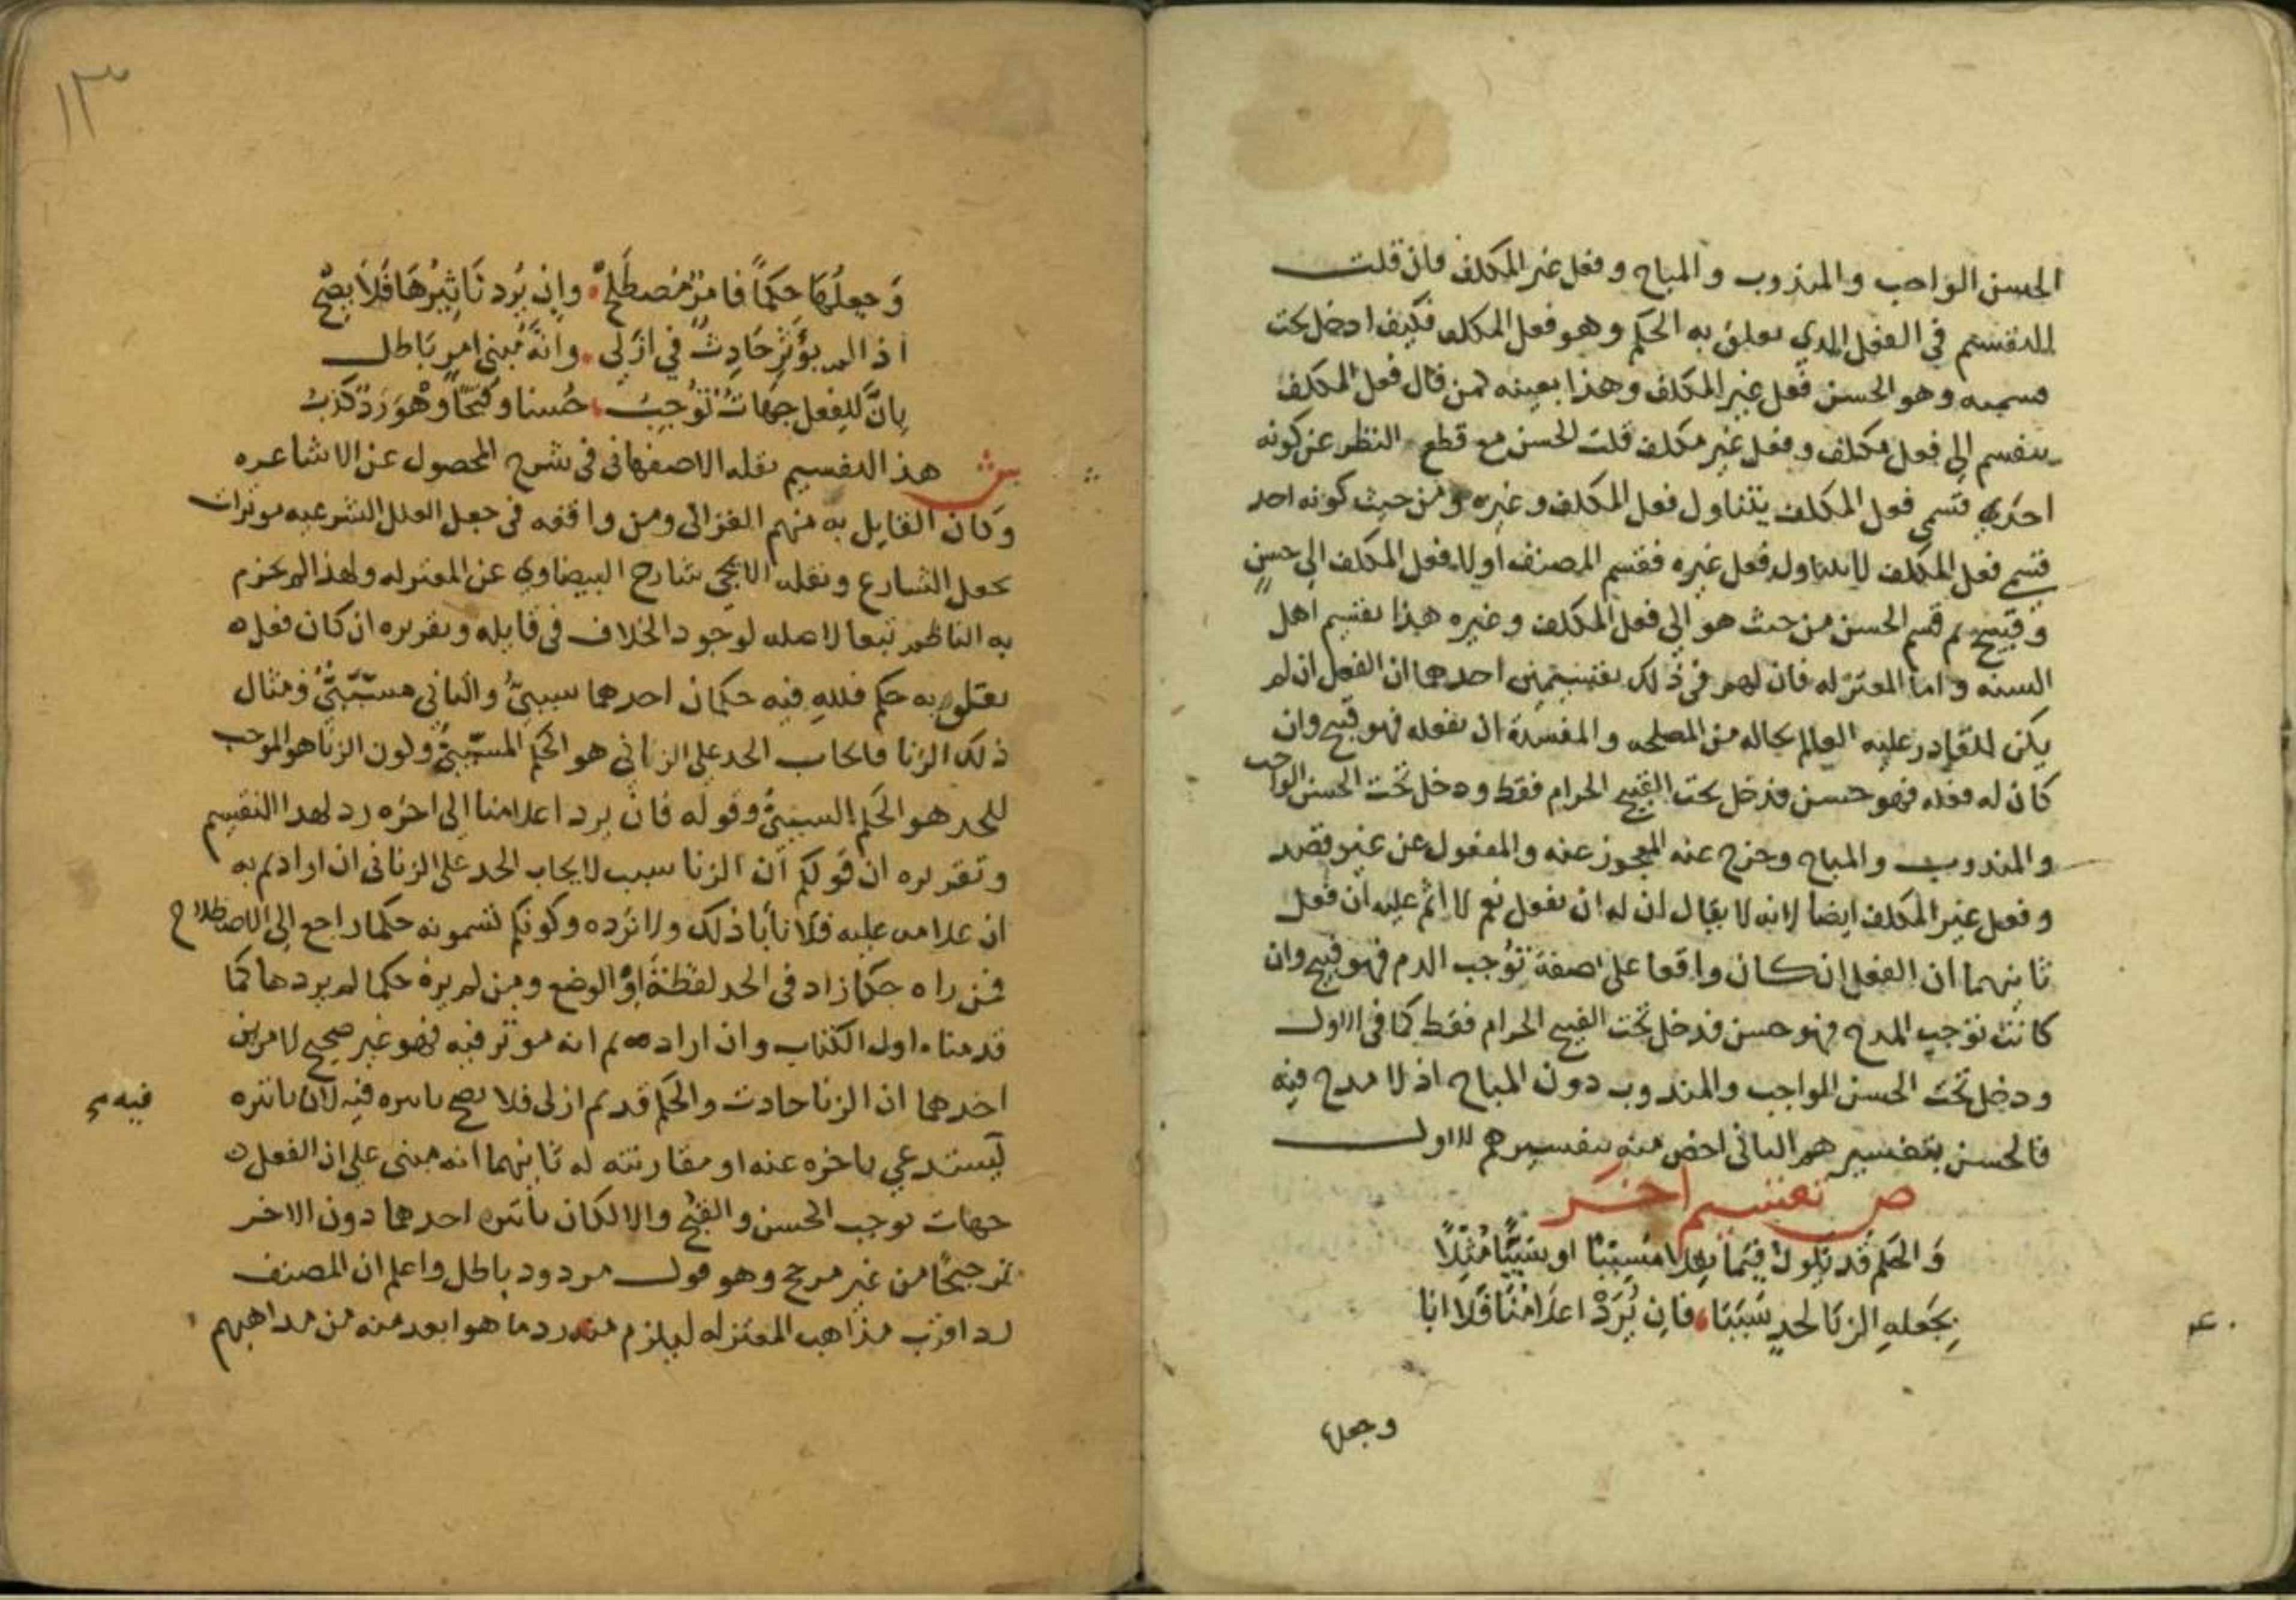 الحسن الواجب والمندوب والمباح وفعل غير المكلف فان قلت
التقسيم في الفعل الذي تعلق به الحكم وهو فعل المكلف فكيف ادخل تحت
قسميه وهو الحسن فعل غير المكلف وهذا بعينه كمن قال فعل المكلف
ينقسم الى فعل مكلف وفعل غير مكلف قلت الحسن مع قطع النظر عن كونه
احدى قسمي فعل المكلف يتناول فعل المكلف وغيره ومن حيث كونه احد
قسمي فعل المكلف لا يتناول فعل غيره فقسم المصنف اولا فعل المكلف الى حسن
وقبيح ثم قسم الحسن من حيث هو الى فعل المكلف وغيره هذا تقسيم اهل
السنة واما المعتزله فان لهم في ذلك تقسيمين احدهما ان الفعل ان لم
يكن للقادر عليه العالم بحاله من المصلحه والمفسدة ان يفعله فهو قبيح وان
كان له فعله فهو حسن فدخل تحت القبيح الحرام فقط ودخل تحت الحسن الواجب
والمندوب والمباح وخرج عنه المعجوز عنه والمفعول عن غير قصد
وفعل غير المكلف ايضا لانه لا يقال ان له ان يفعل نعم لا اثم عليه ان فعل
ثانيهما ان الفعل ان كان واقعا على صفة توجب الذم فهو قبيح وان
كانت توجب المدح فهو حسن فدخل تحت القبيح الحرام فقط كما في الاول
ودخل تحت الحسن الواجب والمندوب دون المباح اذ لا مدح فيه
فالحسن بتفسيرهم الثاني اخص منه بتفسيرهم الاول
ص تقسيم اخر
وَالحكم قد يكون فيما مسببا او سببيا مثلا
بجعله الزنا لحد سببا فان يرد اعلامنا فلا ابا
وجعلها
١٣
وَجعلُهَا حكمًا فامرٌ مُصطَلح وان يُرد تَاثيرُهَا فَلاَ يصح
اذ لم يؤثر حادث في ازلي وانه مبنى امر باطل
بانَّ للفعل جهات توجب حُسنا وقبحًا وهْوَ ردٌّ كذب
ش هذا التقسيم نقله الاصفهاني في شرح المحصول عن الاشاعره
وكان القايل به منهم الغزالي ومن وافقه في جعل العلل الشرعيه موثرات
بجعل الشارع ونقله الايجي شارح البيضاوي عن المعتزله ولهذا لم يجزم
به الناظم تبعا لاصله لوجود الخلاف في قايله وتقريره ان كان فعل
تعلق به حكم فلله فيه حكمان احدهما سببيٌّ والثاني مسبّبيٌّ ومثال
ذلك الزنا فايجاب الحد على الزاني هو الحكم المسببيُّ وكون الزنا هو الموجب
للحد هو الحكم السببيُّ وقوله فان يرد اعلامنا الى اخره رد لهذا التقسيم
وتقريره ان قولكم ان الزنا سبب لايجاب الحد على الزاني ان ارادتم به
انه علامه عليه فلا نابا ذلك ولا نرده وكونكم تسمونه حكما راجع الى الاصطلاح
فمن راه حكما زاد في الحد لفظة او الوضع ومن لم يره حكما لم يزدها كما
قدمناه اول الكتاب وان اردتم انه موثر فيه فهو غير صحيح لامرين
احدهما ان الزنا حادث والحكم قديم ازلي فلا يصح تاثيره فيه لان تاثيره
فيه صح
يستدعي تاخره عنه او مقارنته له ثانيهما انه مبني على ان الفعل
جهات توجب الحسن والقبح والا لكان تاثير احدهما دون الاخر
ترجيحًا من غير مرجح وهو قول مردود باطل واعلم ان المصنف
رد اقرب مذاهب المعتزله ليلزم منه رد ما هو ابعد منه من مذاهبهم